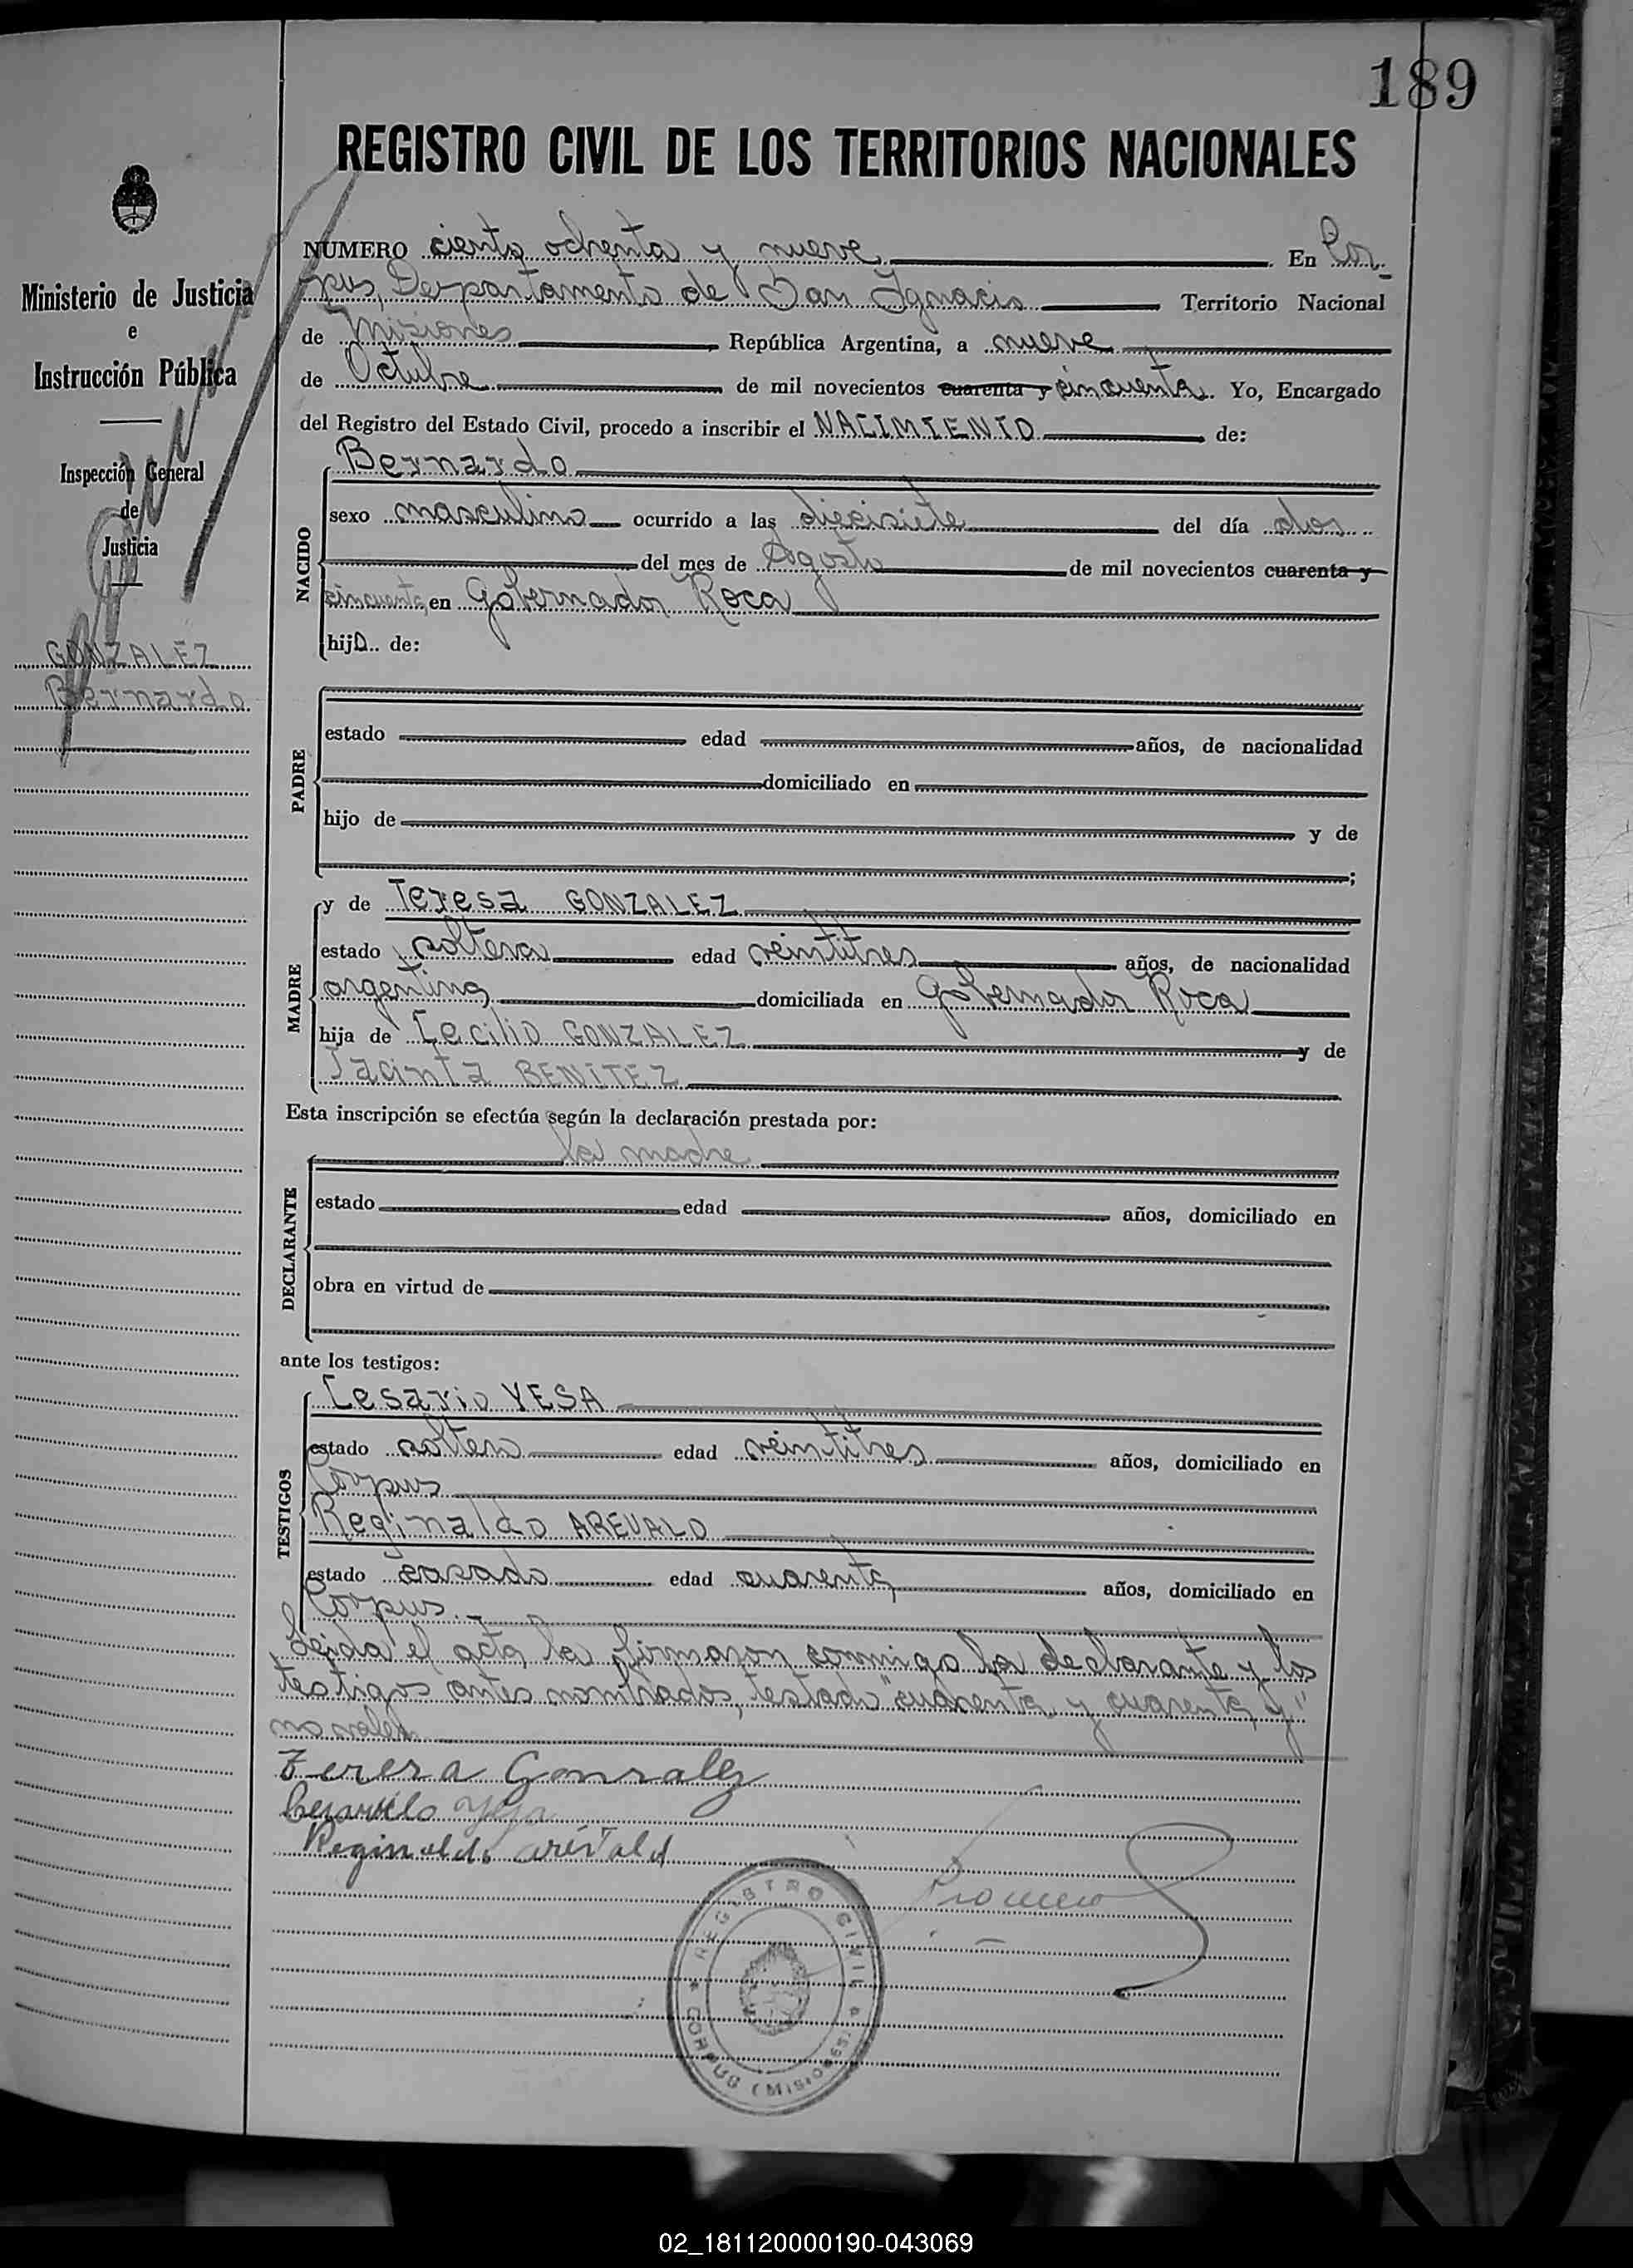 189
REGISTRO CIVIL DE LOS TERRITORIOS NACIONALES
Ministerio de Justicia
e
Instrucción Pública
Inspección General
de
Justicia
GONZALEZ
Bernardo
NUMERO ciento ochenta y nueve En Cor-
pus, Departamento de San Ignacio Territorio Nacional
de Misiones República Argentina, a nueve
de Octubre de mil novecientos cuarenta y cincuenta. Yo, Encargado
del Registro del Estado Civil, procedo a inscribir el NACIMIENTO de:
NACIDO
Bernardo
sexo masculino ocurrido a las diecisiete del día dos
del mes de Agosto de mil novecientos cuarenta y
cincuenta, en Gobernador Roca
hijo de:
PADRE
estado edad años, de nacionalidad
domiciliado en
hijo de y de
;
MADRE
y de Teresa GONZALEZ
estado soltera edad veintitres años, de nacionalidad
argentina domiciliada en Gobernador Roca
hija de Cecilio GONZALEZ y de
Jacinta BENITEZ
Esta inscripción se efectúa según la declaración prestada por:
DECLARANTE
la madre
estado edad años, domiciliado en
obra en virtud de
ante los testigos:
TESTIGOS
Cesario YESA
estado soltero edad veintitres años, domiciliado en
Corpus
Reginaldo AREVALO
estado casado edad cuarenta años, domiciliado en
Corpus.-
Leida el acta, la firmaron conmigo la declarante y los
testigos antes nombrados, testado "cuarenta y cuarenta y"
no valen
Teresa Gonzalez
Reginaldo
REGISTRO CIVIL
CORPUS (Misiones)
02_181120000190-043069